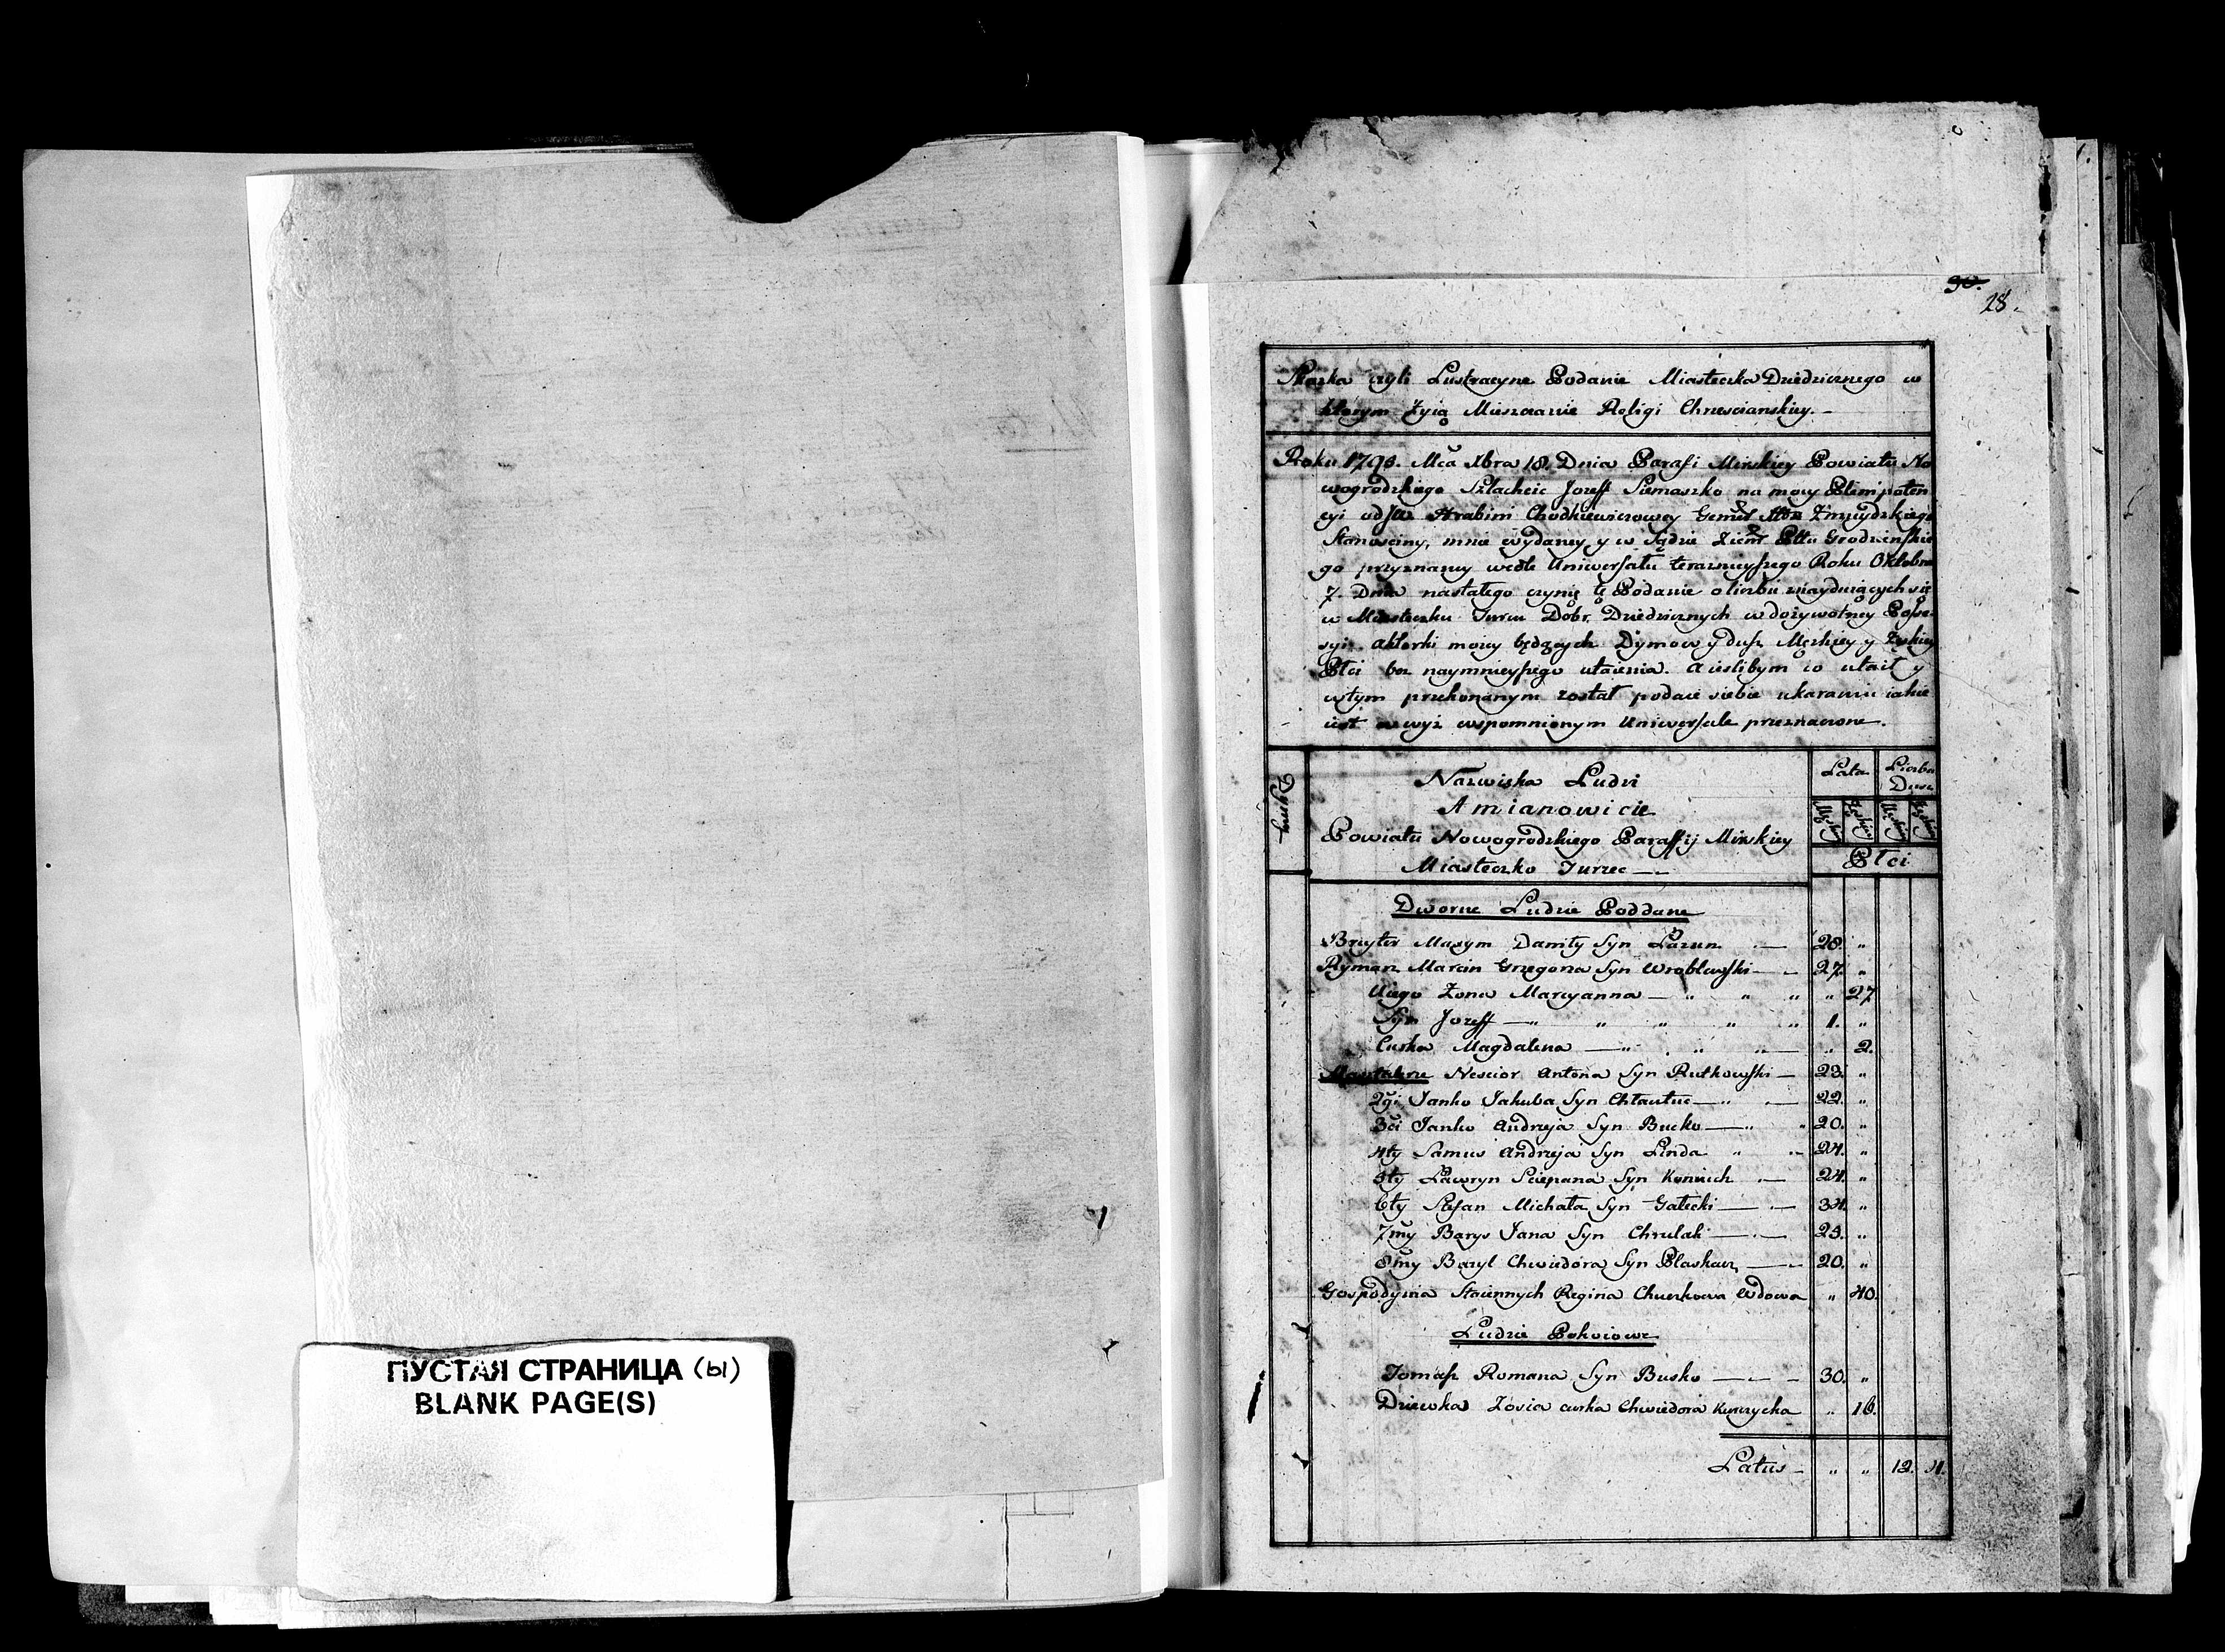 30.
28.
Skazka czyli Lustracyne Podanie Miasteczka Dziedzicznego w
ktorym Żyią Mieszczanie Religi Chrzescianskiey.
Roku 1795. Mca Xbra 18. Dnia Parafi Mirskiey Powiatu No
wogrodzkiego Szlachcic Jozeff Siemaszko na mocy Plenipoten
cyi od JW Hrabini Chodkiewiczowey Żmuydzkiego
Starosciny, mnie wydaney y w Sądzie Ziem Pttu Grodzienskie
go przyznaney wedle Uniwersału teraznieyszego Roku Oktobra
7. Dnia nastałego czynię tę Podanie o liczbie znayduiących się
w Miasteczku Turcu Dobr Dziedzicznych w dożywotney Posse
syi Aktorki moiey będących Dymow y dusz Męzkiey y Żęskiey
Płci bez naymnieyszego utaienia. A iesliby m co utaił y
w tym przekonanym został podaię siebie ukaraniu iakie
iest w wyż wspomnionym Uniwersale przeznaczone.
Dymy
Nazwiska Ludzi
Amianowicie
Powiatu Nowogrodzkiego Paraffij Mirskiey
Miasteczko Turzec
Lata
Liczba
Dusz
Męzkiey
Żęskiey
Męzkiey
Żęskiey
Płci
Dworne Ludzie Poddane
Masym Daniły Syn Łazun 28. "
Rymarz Marcin Grzegorza Syn Wroblewski 27. "
Niego Żona Maryanna " " " " 27
Syn Jozeff " " " " " 1. "
Curka Magdalena " " " " 2.
Masztalerze Nescior Antona Syn Rutkowski 23. "
2gi Janko Jakuba Syn Chtautuc " 22. "
3ci Janko Andrzeja Syn Bucko " " 20. "
4ty Samuś Andrzeja Syn Linda " " 24. "
5ty Ławryn Sciepana Syn Kunnich 24. "
6ty Stefan Michała Syn Gałecki 34. "
7my Barys Jana Syn Chrulak 25. "
8my Bazyl Chwiedora Syn Płaskacz 20. "
Gospodynia Staiennych Regina Wdowa " 40.
Ludzie Pokoiowe
Tomasz Romana Syn Busko 30. "
Dziewka Zosia curka Chwiedora Kunczycka " 16.
Latus " " 12. 4.
ПУСТАЯ СТРАНИЦА (ы)
BLANK PAGE(S)